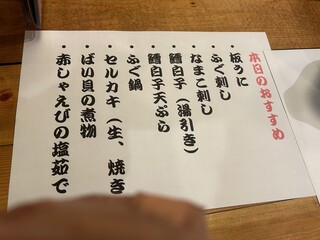 本日のおすすめ
・板うに
・ふぐ刺し
・なまこ刺し
・鱈白子(湯引き)
・鱈白子天ぷら
・ふぐ鍋
・セルカキ(生、焼き
・ばい貝の煮物
・赤しゃえびの塩茹で